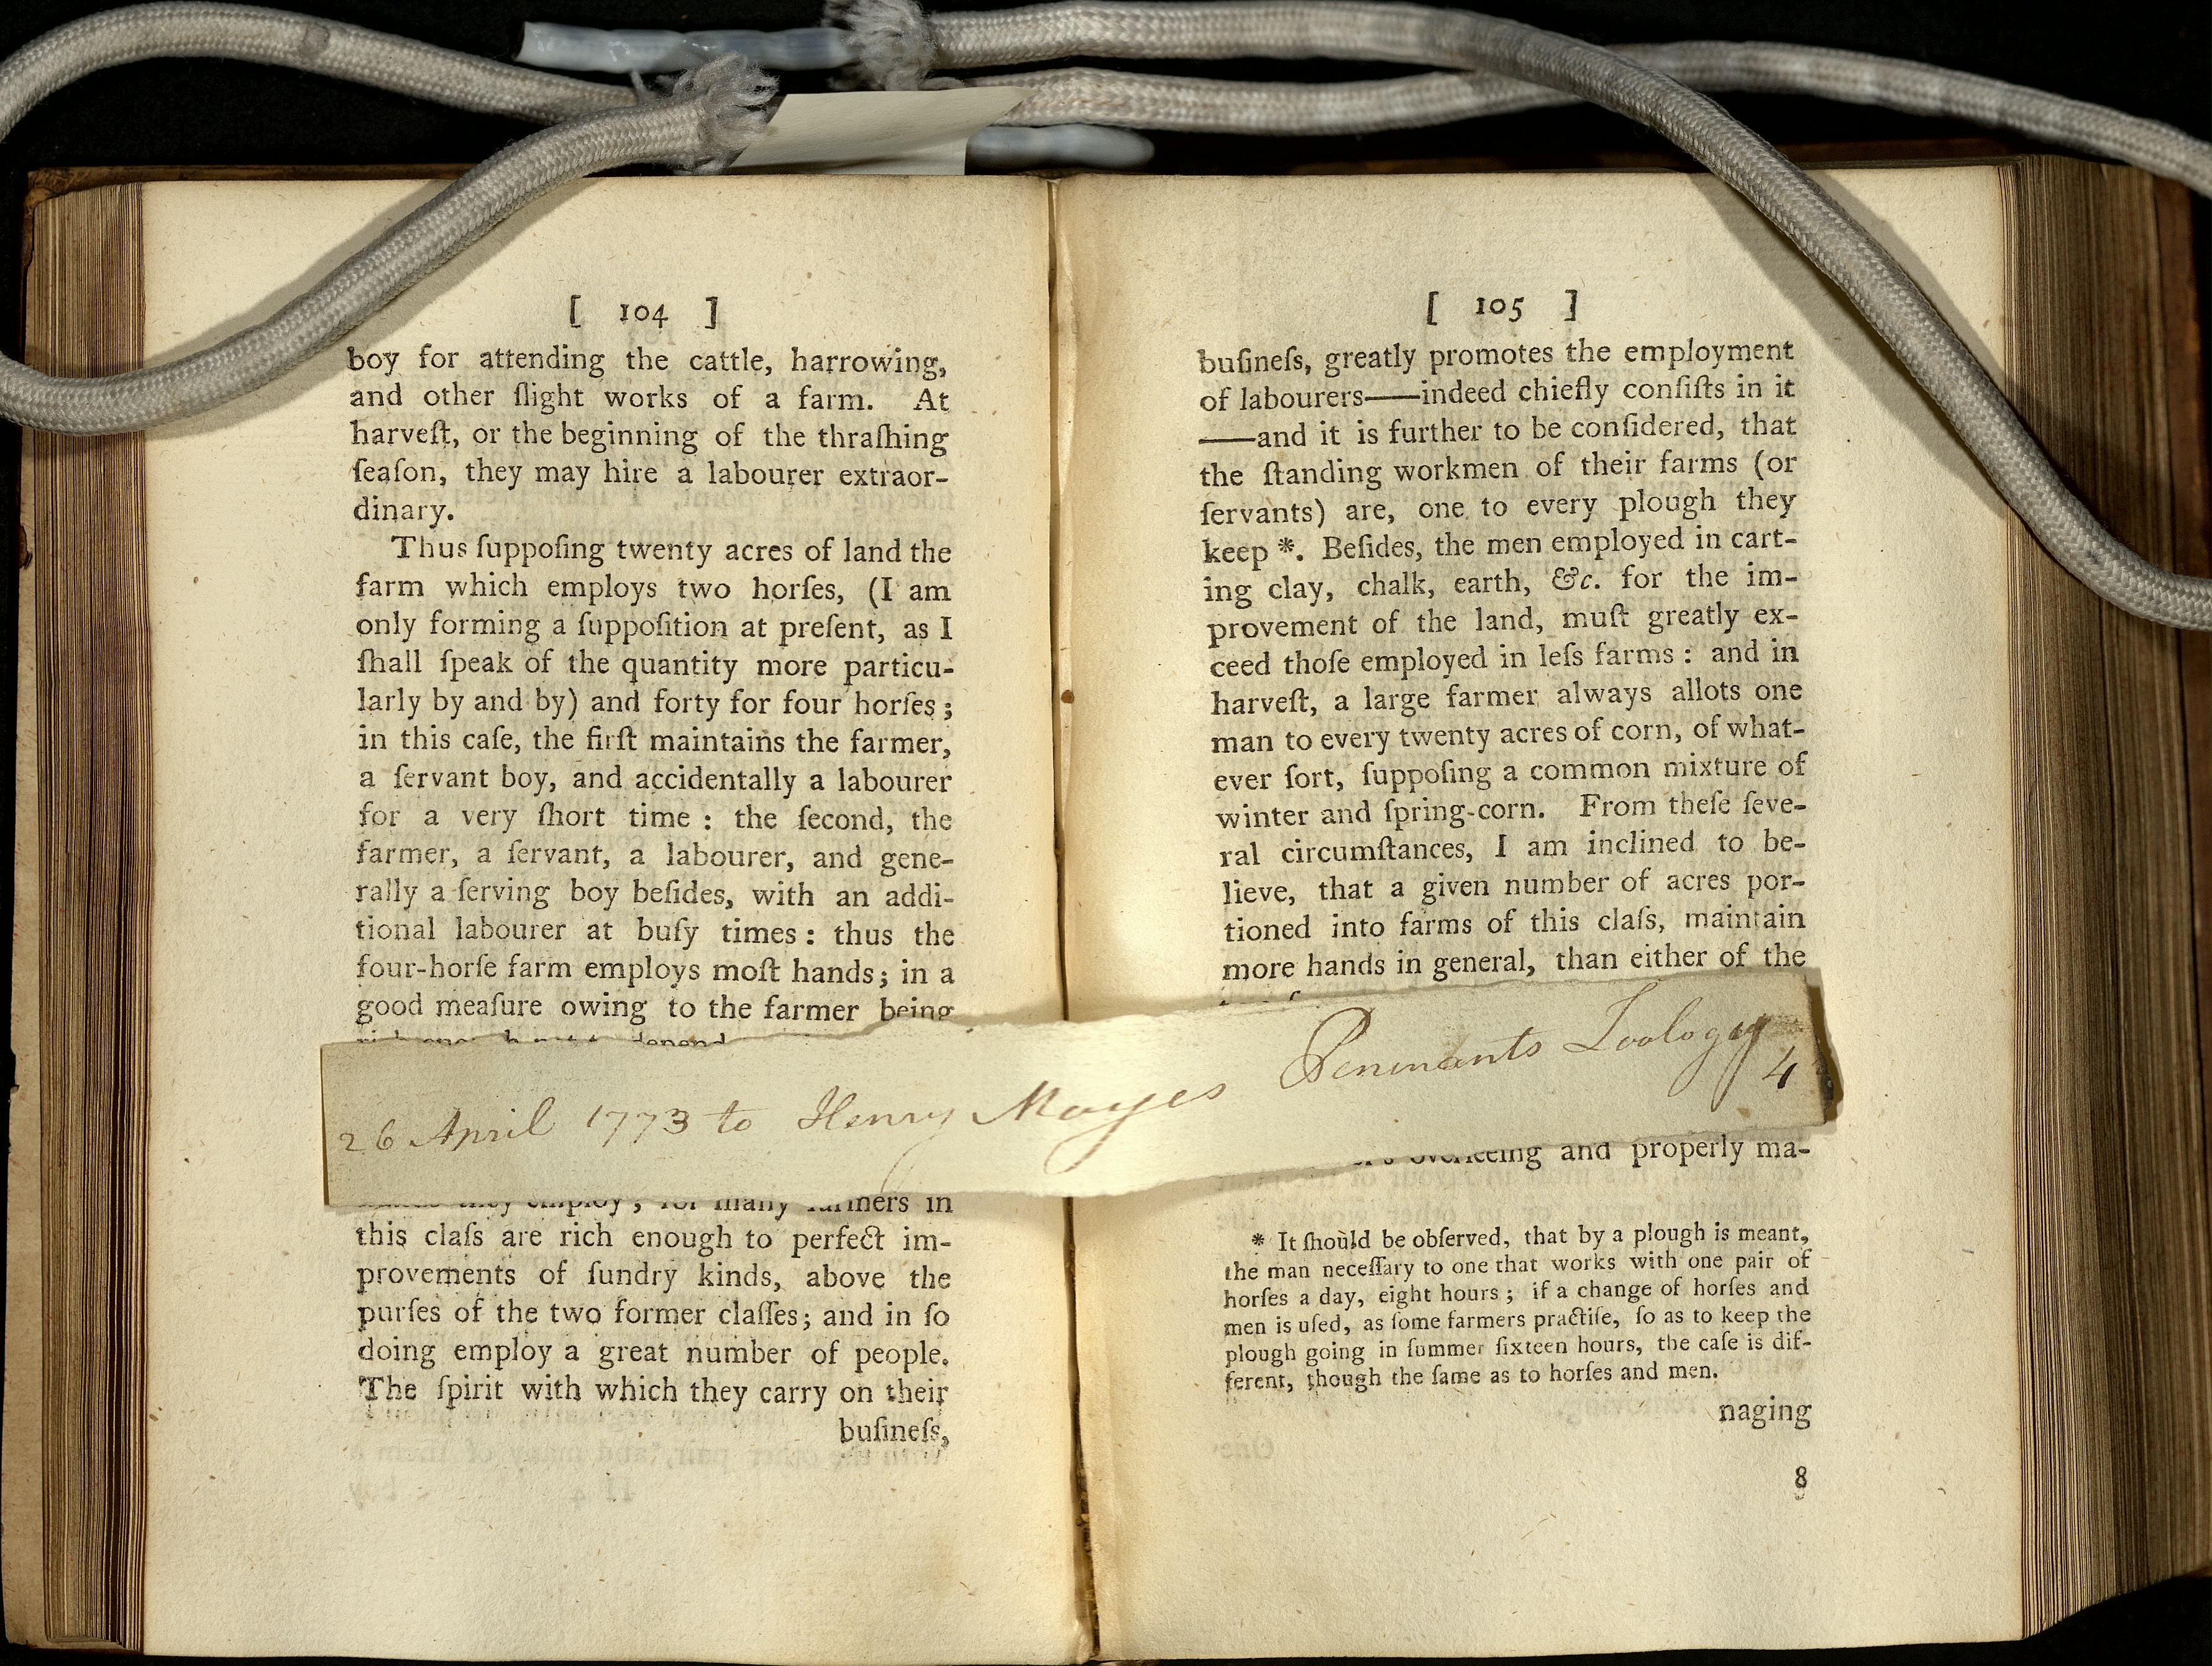 [ 104 ]
boy for attending the cattle, harrowing,
and other ſlight works of a farm. At
harveſt, or the beginning of the thraſhing
ſeaſon, they may hire a labourer extraor-
dinary.
Thus ſuppoſing twenty acres of land the
farm which employs two horſes, (I am
only forming a ſuppoſition at preſent, as I
ſhall ſpeak of the quantity more particu-
larly by and by) and forty for four horſes;
in this caſe, the firſt maintains the farmer,
a ſervant boy, and accidentally a labourer
for a very ſhort time : the ſecond, the
farmer, a ſervant, a labourer, and gene-
rally a ſerving boy beſides, with an addi-
tional labourer at buſy times : thus the
four-horſe farm employs moſt hands; in a
good meaſure owing to the farmer being
depend
they employ; for many farmers in
this claſs are rich enough to perfect im-
provements of ſundry kinds, above the
purſes of the two former claſſes; and in ſo
doing employ a great number of people.
The ſpirit with which they carry on their
buſineſs,
[ 105 ]
buſineſs, greatly promotes the employment
of labourers——indeed chiefly conſiſts in it
——and it is further to be conſidered, that
the ſtanding workmen of their farms (or
ſervants) are, one to every plough they
keep *. Beſides, the men employed in cart-
ing clay, chalk, earth, &c. for the im-
provement of the land, muſt greatly ex-
ceed thoſe employed in leſs farms : and in
harveſt, a large farmer always allots one
man to every twenty acres of corn, of what-
ever ſort, ſuppoſing a common mixture of
winter and ſpring-corn. From theſe ſeve-
ral circumſtances, I am inclined to be-
lieve, that a given number of acres por-
tioned into farms of this claſs, maintain
more hands in general, than either of the
26 April 1773 to Henry Mayes Pennants Zoology
4
and properly ma-
* It ſhould be obſerved, that by a plough is meant,
the man neceſſary to one that works with one pair of
horſes a day, eight hours; if a change of horſes and
men is uſed, as ſome farmers practiſe, ſo as to keep the
plough going in ſummer ſixteen hours, the caſe is dif-
ferent, though the ſame as to horſes and men.
naging
8